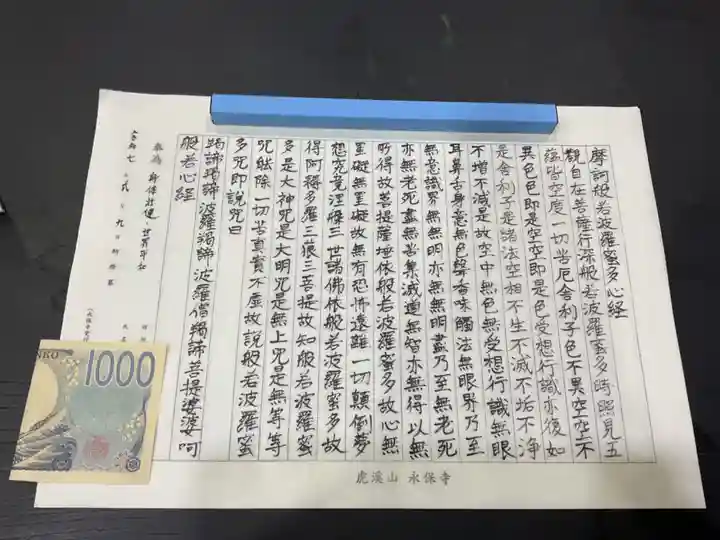 摩訶般若波羅蜜多心経
観自在菩薩行深般若波羅蜜多時照見五
蘊皆空度一切苦厄舎利子色不異空空不
異色色即是空空即是色受想行識亦復如
是舎利子是諸法空相不生不滅不垢不浄
不増不減是故空中無色無受想行識無眼
耳鼻舌身意無色聲香味觸法無眼界乃至
無意識界無無明亦無無明盡乃至無老死
亦無老死盡無苦集滅道無智亦無得以無
所得故菩提薩埵依般若波羅蜜多故心無
罣礙無罣礙故無有恐怖遠離一切顛倒夢
想究竟涅槃三世諸佛依般若波羅蜜多故
得阿耨多羅三藐三菩提故知般若波羅蜜
多是大神咒是大明咒是無上咒是無等等
咒能除一切苦真實不虚故説般若波羅蜜
多咒即説咒曰
羯諦羯諦波羅羯諦波羅僧羯諦菩提婆婆呵
般若心経
奉為 身体壮健、世界平和
令和七年弐月九日
虎渓山 永保寺
NKO 1000